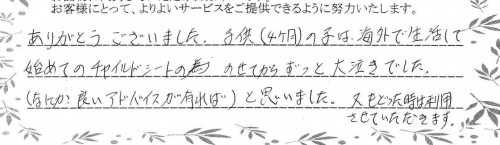 お客様にとって、よりよいサービスをご提供できるように努力いたします。
ありがとうございました。子供(4ヶ月)の子は、海外で生活して
始めてのチャイルドシートの為 のせてからずっと大泣きでした。
(なにか?良いアドバイスが有れば)と思いました。又もどった時は利用
させていただきます。